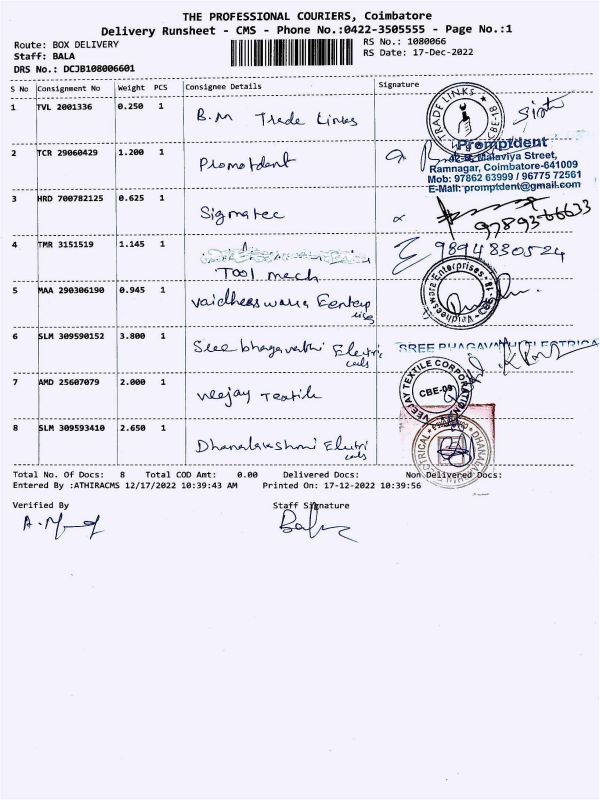 THE PROFESSIONAL COURIERS, Coimbatore
Delivery Runsheet - CMS - Phone No.:0422-3505555 - Page No.:1
Route: BOX DELIVERY
RS No.: 1080066
Staff: BALA
RS Date: 17-Dec-2022
DRS No.: DCJB108006601
S No Consignment No Weight PCS Consignee Details Signature
1 TVL 2001336 0.250 1 B.M Trade Links
TRADE LINKS
2 TCR 29060429 1.200 1 Promptdent
Promptdent
42-B, Malaviya Street,
Ramnagar, Coimbatore-641009
Mob: 97862 63999 / 96775 72561
E-Mail: promptdent@gmail.com
3 HRD 700782125 0.625 1 Sigmatec
9789366633
4 TMR 3151519 1.145 1 Tool mech
9894830524
5 MAA 290306190 0.945 1 Vaidheeswara Eenterp
rises
Vaidheeswara Enterprises CBE-18
6 SLM 309590152 3.800 1 Sree bhagavathi Electri
cals
SREE BHAGAVATHI ELECTRICA
7 AMD 25607079 2.000 1 Veejay Textile
VEEJAY TEXTILE CORPORATION
CBE-09
8 SLM 309593410 2.650 1 Dhanalakshmi Electri
cals
Total No. Of Docs: 8 Total COD Amt: 0.00 Delivered Docs: Non Delivered Docs:
Entered By :ATHIRACMS 12/17/2022 10:39:43 AM Printed On: 17-12-2022 10:39:56
Verified By Staff Signature